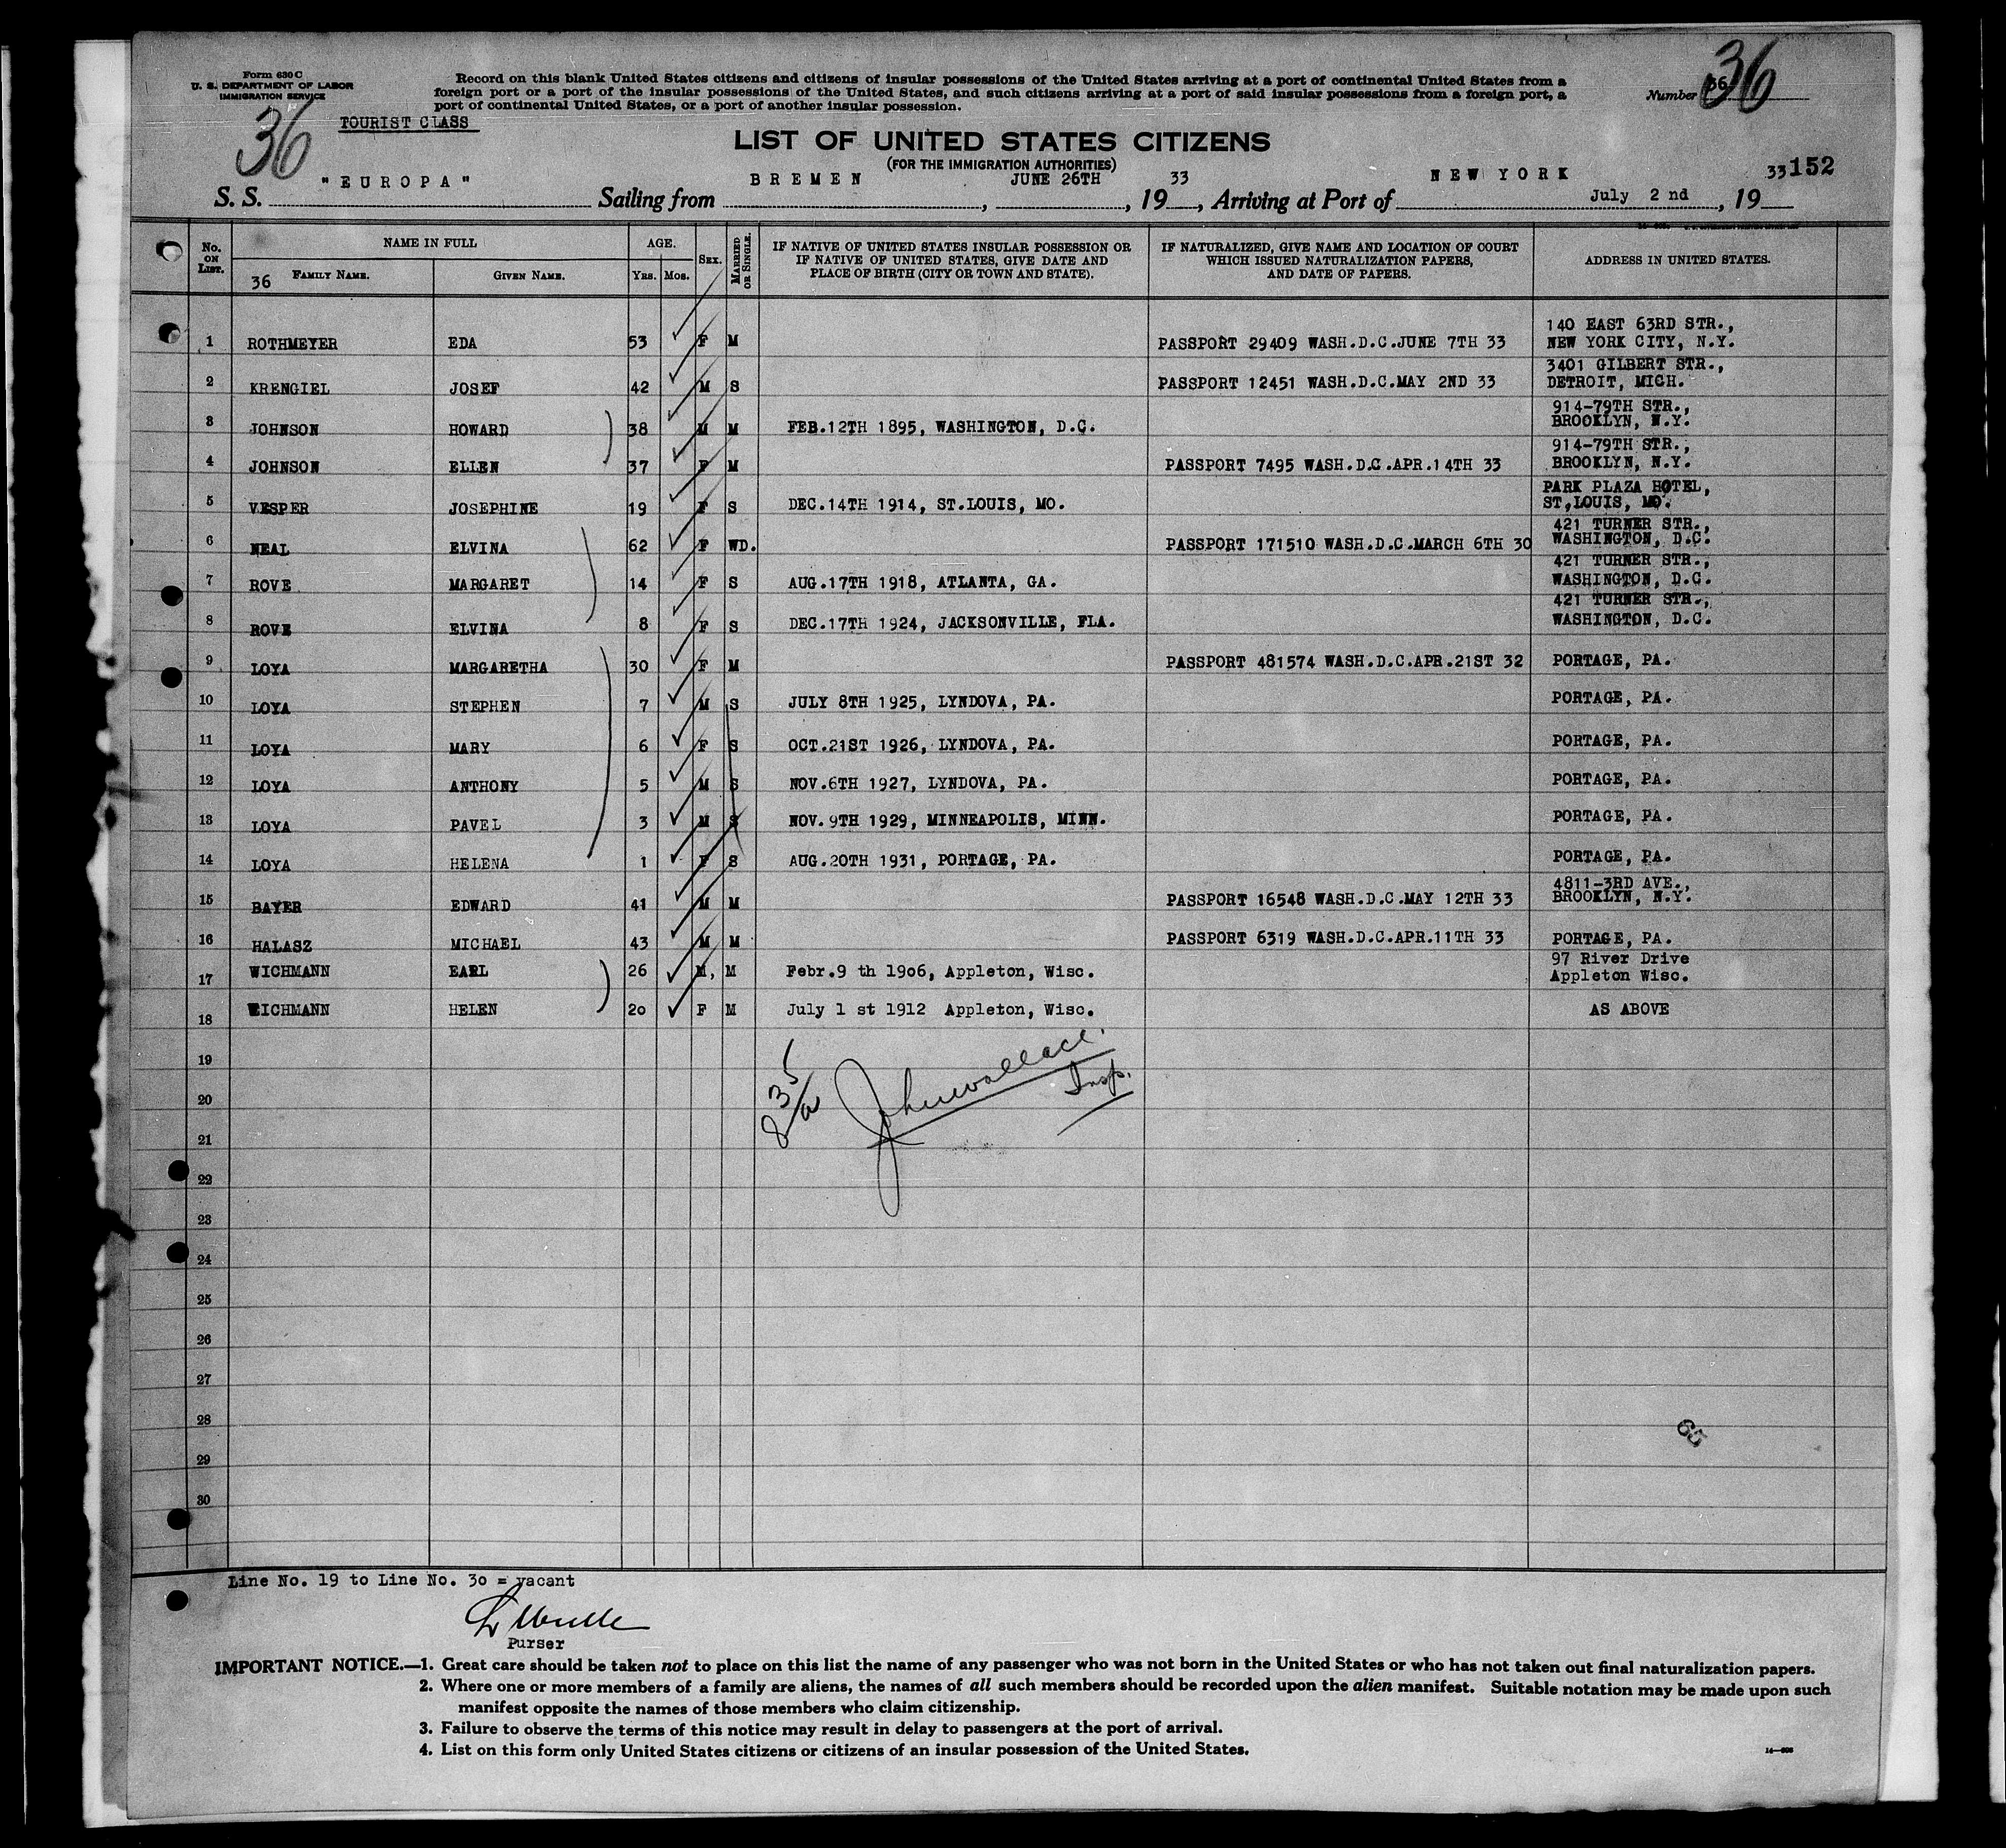 Form 630 C
U. S. DEPARTMENT OF LABOR
IMMIGRATION SERVICE
Record on this blank United States citizens and citizens of insular possessions of the United States arriving at a port of continental United States from a
foreign port or a port of the insular possessions of the United States, and such citizens arriving at a port of said insular possessions from a foreign port, a
port of continental United States, or a port of another insular possession.
Number 36
36
36
TOURIST CLASS
LIST OF UNITED STATES CITIZENS
(FOR THE IMMIGRATION AUTHORITIES)
152
S. S. "EUROPA" Sailing from BREMEN, JUNE 26TH, 1933, Arriving at Port of NEW YORK July 2 nd, 1933
No. ON LIST. NAME IN FULL AGE. SEX. MARRIED OR SINGLE. IF NATIVE OF UNITED STATES INSULAR POSSESSION OR IF NATIVE OF UNITED STATES, GIVE DATE AND PLACE OF BIRTH (CITY OR TOWN AND STATE). IF NATURALIZED, GIVE NAME AND LOCATION OF COURT WHICH ISSUED NATURALIZATION PAPERS, AND DATE OF PAPERS. ADDRESS IN UNITED STATES.
36 FAMILY NAME. GIVEN NAME. YRS. MOS.
1 ROTHMEYER EDA 53 F M PASSPORT 29409 WASH.D.C.JUNE 7TH 33 140 EAST 63RD STR., NEW YORK CITY, N.Y.
2 KRENGIEL JOSEF 42 M S PASSPORT 12451 WASH.D.C.MAY 2ND 33 3401 GILBERT STR., DETROIT, MICH.
3 JOHNSON HOWARD 38 M M FEB.12TH 1895, WASHINGTON, D.C. 914-79TH STR., BROOKLYN, N.Y.
4 JOHNSON ELLEN 37 F M PASSPORT 7495 WASH.D.C.APR.14TH 33 914-79TH STR., BROOKLYN, N.Y.
5 VESPER JOSEPHINE 19 F S DEC.14TH 1914, ST.LOUIS, MO. PARK PLAZA HOTEL, ST,LOUIS, MO.
6 NEAL ELVINA 62 F WD. PASSPORT 171510 WASH.D.C.MARCH 6TH 30 421 TURNER STR., WASHINGTON, D.C.
7 ROVE MARGARET 14 F S AUG.17TH 1918, ATLANTA, GA. 421 TURNER STR., WASHINGTON, D.C.
8 ROVE ELVINA 8 F S DEC.17TH 1924, JACKSONVILLE, FLA. 421 TURNER STR., WASHINGTON, D.C.
9 LOYA MARGARETHA 30 F M PASSPORT 481574 WASH.D.C.APR.21ST 32 PORTAGE, PA.
10 LOYA STEPHEN 7 M S JULY 8TH 1925, LYNDOVA, PA. PORTAGE, PA.
11 LOYA MARY 6 F S OCT.21ST 1926, LYNDOVA, PA. PORTAGE, PA.
12 LOYA ANTHONY 5 M S NOV.6TH 1927, LYNDOVA, PA. PORTAGE, PA.
13 LOYA PAVEL 3 M S NOV.9TH 1929, MINNEAPOLIS, MINN. PORTAGE, PA.
14 LOYA HELENA 1 F S AUG.20TH 1931, PORTAGE, PA. PORTAGE, PA.
15 BAYER EDWARD 41 M M PASSPORT 16548 WASH.D.C.MAY 12TH 33 4811-3RD AVE., BROOKLYN, N.Y.
16 HALASZ MICHAEL 43 M M PASSPORT 6319 WASH.D.C.APR.11TH 33 PORTAGE, PA.
17 WICHMANN EARL 26 M, M Febr.9 th 1906, Appleton, Wisc. 97 River Drive Appleton Wisc.
18 WICHMANN HELEN 20 F M July 1 st 1912 Appleton, Wisc. AS ABOVE
19
20
21
22
23
24
25
26
27
28
29
30
835/a
John Wallace
Insp.
65
Line No. 19 to Line No. 30 = vacant
Purser
IMPORTANT NOTICE.—1. Great care should be taken not to place on this list the name of any passenger who was not born in the United States or who has not taken out final naturalization papers.
2. Where one or more members of a family are aliens, the names of all such members should be recorded upon the alien manifest. Suitable notation may be made upon such
manifest opposite the names of those members who claim citizenship.
3. Failure to observe the terms of this notice may result in delay to passengers at the port of arrival.
4. List on this form only United States citizens or citizens of an insular possession of the United States.